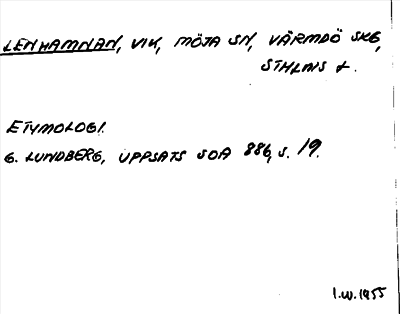 LENHAMNAN, VIK, MÖJA SN, VÄRMDÖ SKG,
STHLMS L.
ETYMOLOGI.
G. LUNDBERG, UPPSATS SOA 886, S. 19.
I.W. 1955